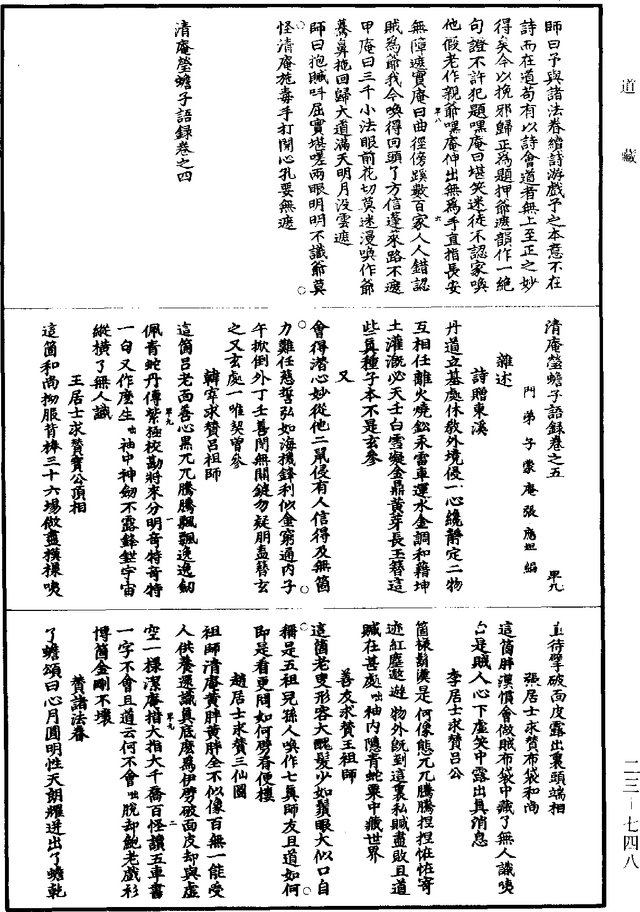 道藏
師曰予與諸法眷續詩游戲予之本意不在
詩而在道苟有以詩會道者無上至正之妙
得矣今以挽邪歸正為題押爺遮韻作一絕
句證不許犯題嘿庵曰堪笑迷徒不認家喚
他假老作親爺嘿庵伸出無為手直指長安
無障遮實庵曰曲徑傍蹊數百家人人錯認
賊為爺我今喚得回頭了方信蓬來路不遮
甲庵曰三千小法眼前花切莫迷漫喚作爺
驀鼻拖回歸大道滿天明月沒雲遮
師曰抱贓呌屈實堪嗟兩眼明明不識爺莫
怪清庵施毒手打開心孔要無遮
清庵瑩蟾子語錄卷之四
清庵瑩蟾子語錄卷之五
門弟子蒙庵張應坦編
雜述
詩贈東溪
丹道立基處休教外境侵一心纔靜定二物
互相任離火燒鈆汞雷車運水金調和藉坤
土灌溉必天壬白雲凝金鼎黃芽長玉簪這
些真種子本不是玄參
又
會得潛心妙從他二鼠侵有人信得及無箇
力難任慈誓弘如海機鋒利似金窮通內子
午掀倒外丁壬善閉無關鍵勿疑朋盍簪玄
之又玄處一唯契曾參
韓宰求贊呂祖師
這箇呂老面善心黑兀兀騰騰飄飄逸逸劒
佩青蛇丹傳紫極校勘將來分明奇特奇特
一句又作麽生咄袖中神劒不露鋒鋩宇宙
縱橫了無人識
王居士求贊寶公頂相
這箇和尚拗服背棒三十六場做盡模樣咦
直待擘破面皮露出裏頭端相
張居士求贊布袋和尚
這箇胖漢慣會做賊布袋中藏了無人識咦
只是賊人心下虛笑中露出真消息
李居士求贊呂公
箇樣鬍漢是何像態兀兀騰騰捏捏恠恠寄
迹紅塵遨遊物外既到這裏私贓盡敗且道
贓在甚處咄袖內隱青蛇粟中藏世界
善友求贊王祖師
這箇老叟形容大醜髭少如鬚眼大似口自
稱是五祖兒孫人喚作七真師友且道如何
即是看更問如何劈脊便摟
趙居士求贊三仙圖
祖師清庵黃胖黃胖全不似像百無一能受
人供養還識真底麽爲伊劈破面皮却與虛
空一樣潔庵㨄大指大千喬百怪讀五車書
一字不會且道云何不會咄脫却鮑老戲衫
博箇金剛不壞
贊諸法眷
了蟾頌曰心月圓明性天朗耀迸出了蟾乾
二三-七四八